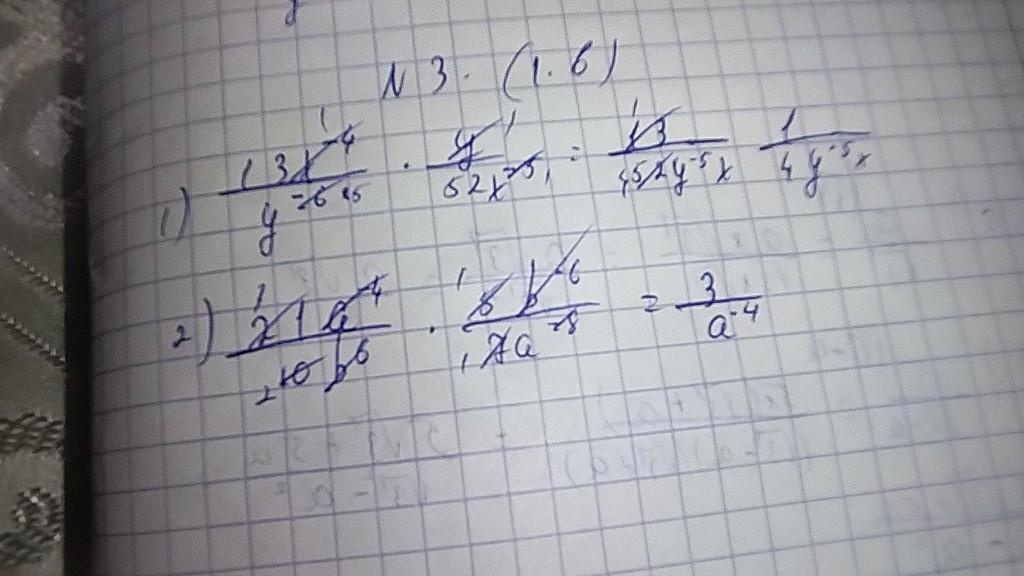 N 3. (1.6)
1) 13x^-4 / y^-6 · y / 52x^-5 = 13 / 52y^-5 x 1 / 4y^-5 x
2) 21a^-4 / 10b^6 · 5b^-6 / 7a^-8 = 3 / a^-4